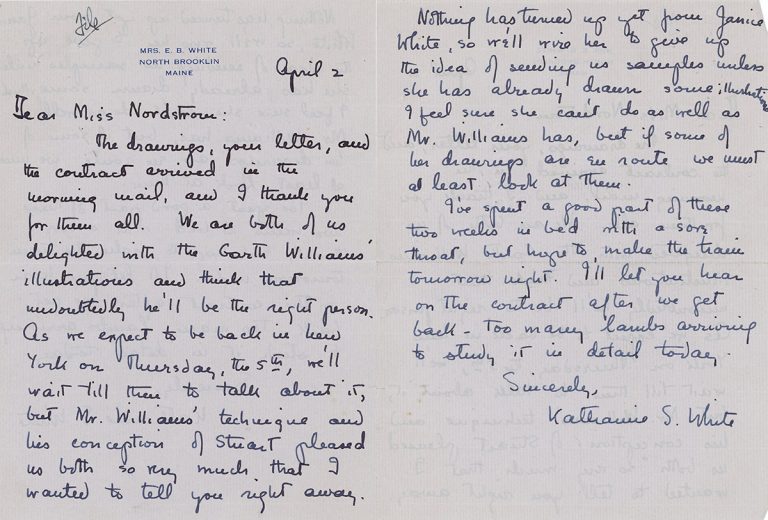 File
MRS. E. B. WHITE
NORTH BROOKLIN
MAINE
April 2
Dear Miss Nordstrom:
The drawings, your letter, and
the contract arrived in the
morning mail, and I thank you
for them all. We are both of us
delighted with the Garth Williams'
illustrations and think that
undoubtedly he'll be the right person.
As we expect to be back in New
York on Thursday, the 5th, we'll
wait till then to talk about it,
but Mr. Williams' technique and
his conception of Stuart pleased
us both so very much that I
wanted to tell you right away.
Nothing has turned up yet from Janice
White, so we'll wire her to give up
the idea of sending us samples unless
she has already drawn some illustrations
I feel sure she can't do as well as
Mr. Williams has, but if some of
her drawings are en route we must
at least look at them.
I've spent a good part of these
two weeks in bed with a sore
throat, but hope to make the train
tomorrow night. I'll let you hear
on the contract after we get
back – too many lambs arriving
to study it in detail today.
Sincerely,
Katharine S. White